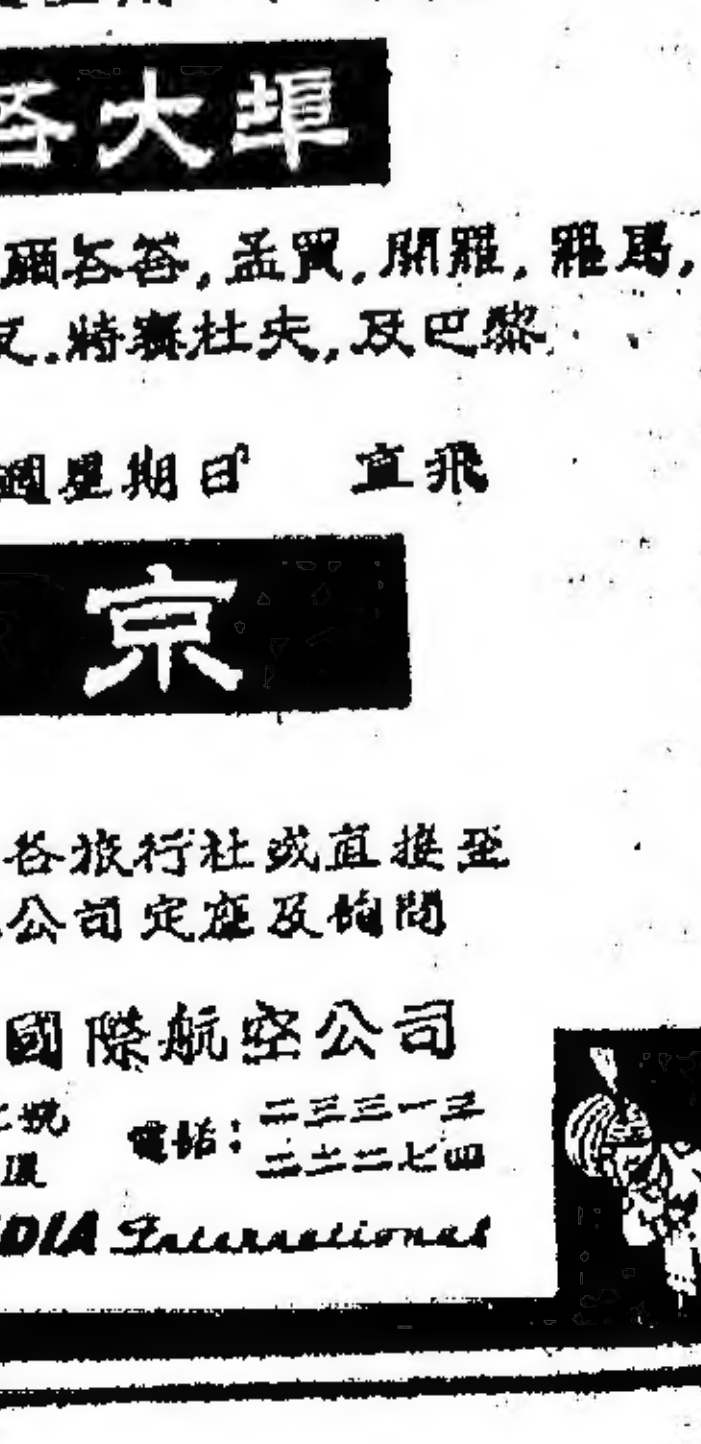 各大埠
爾各答,孟買,開羅,羅馬,
及巴黎
週星期日 直飛
京
各旅行社或直接至
公司定座及詢問
國際航空公司
號 電話:二三三一三
二七四
DIA International